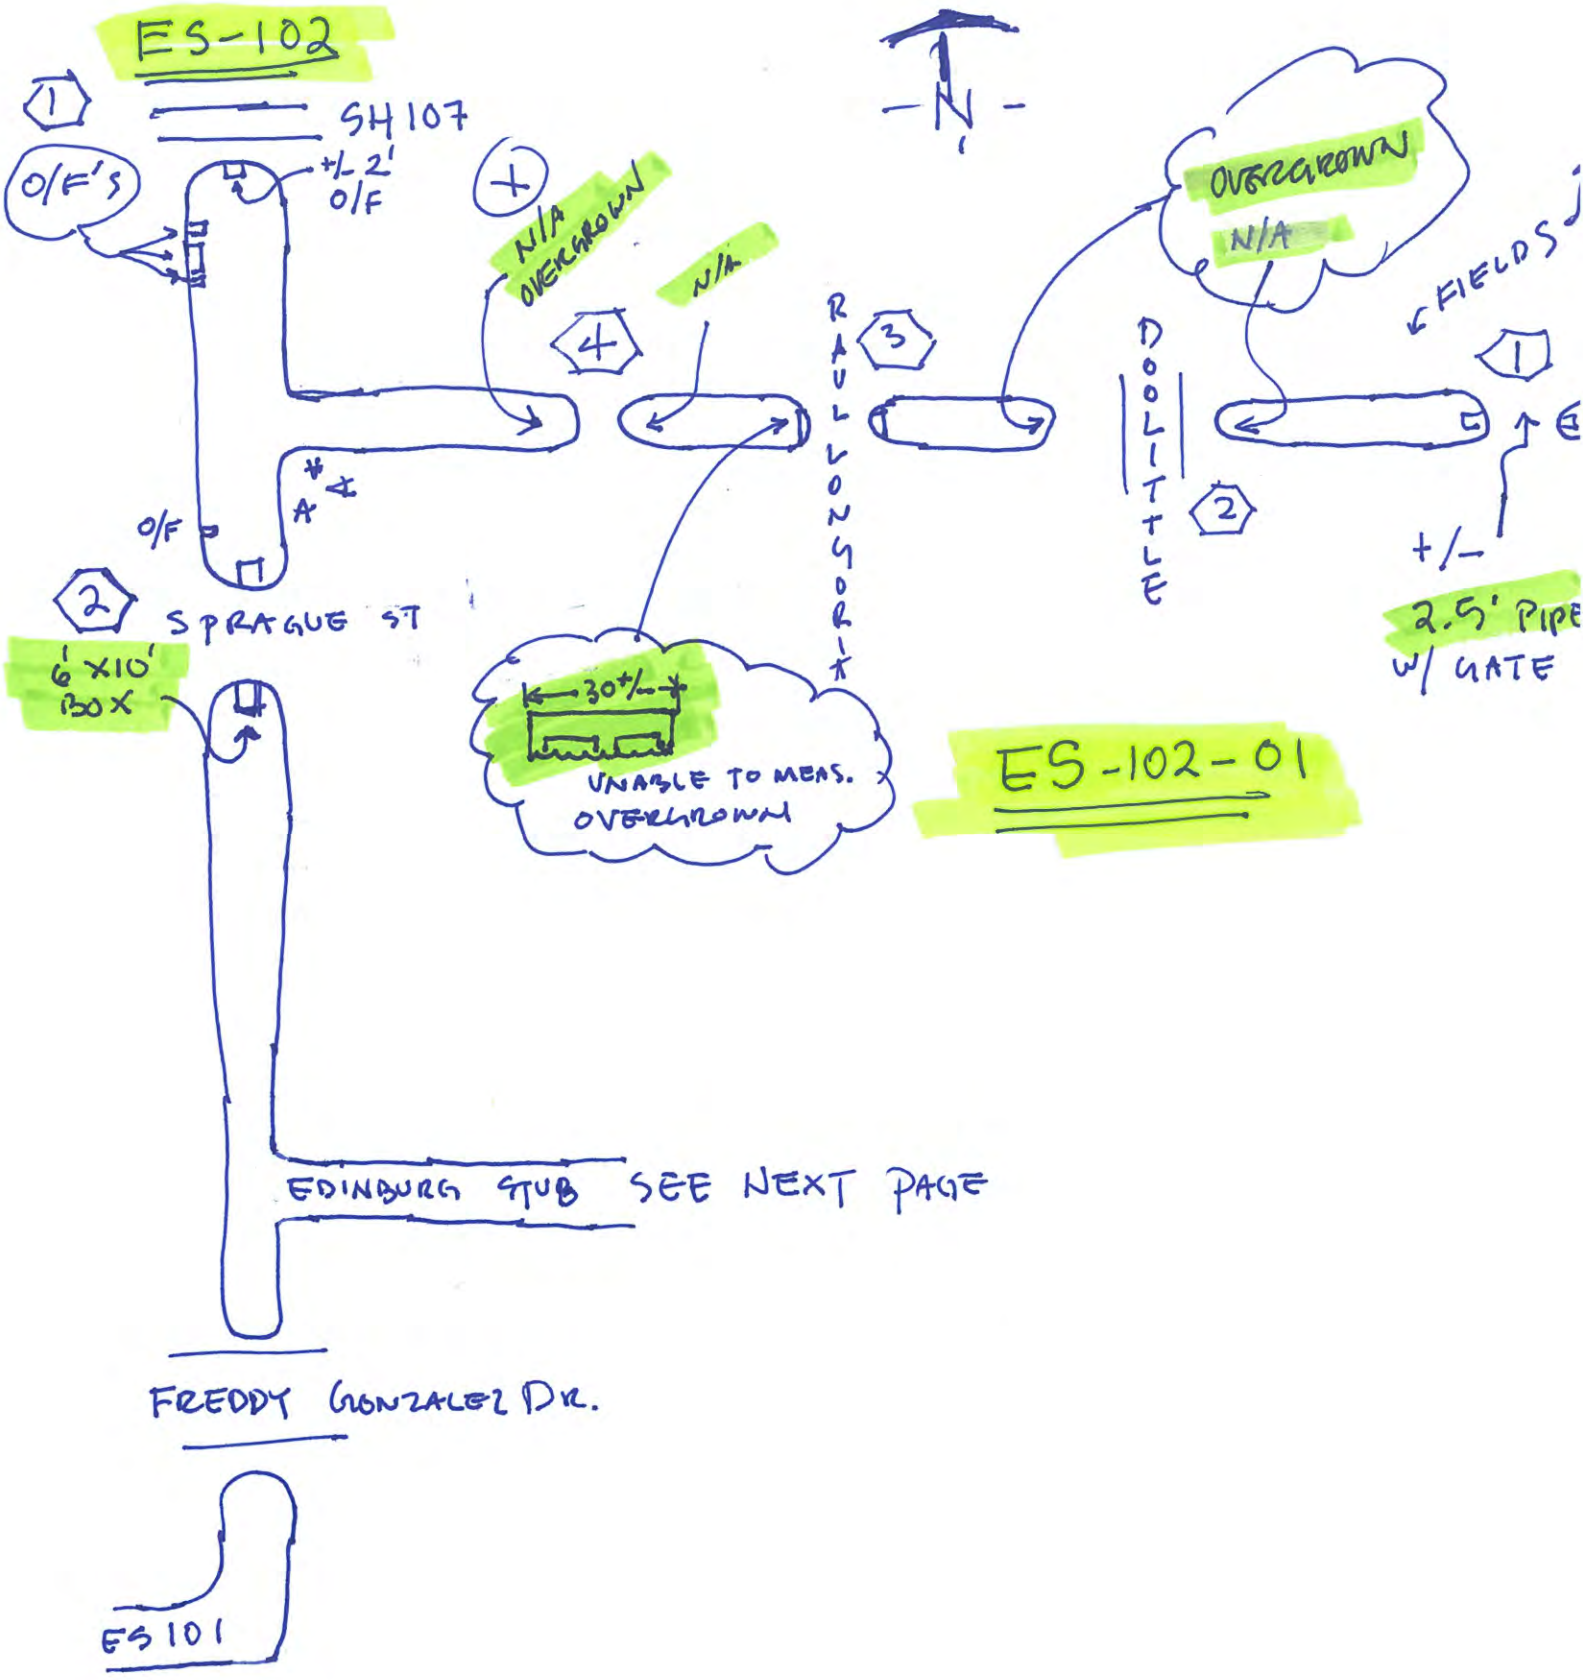 ES-102
1
SH 107
O/F'S
+/- 2'
O/F
N
N/A
OVERGROWN
N/A
OVERGROWN
N/A
FIELDS
4
RAUL LONGORIA
3
DOOLITTLE
1
2
O/F
A
+/-
2.5' PIPE
W/ GATE
2
SPRAGUE ST
6' X10'
BOX
30+/-
UNABLE TO MEAS.
OVERGROWN
ES-102-01
EDINBURG STUB SEE NEXT PAGE
FREDDY GONZALEZ DR.
ES 101